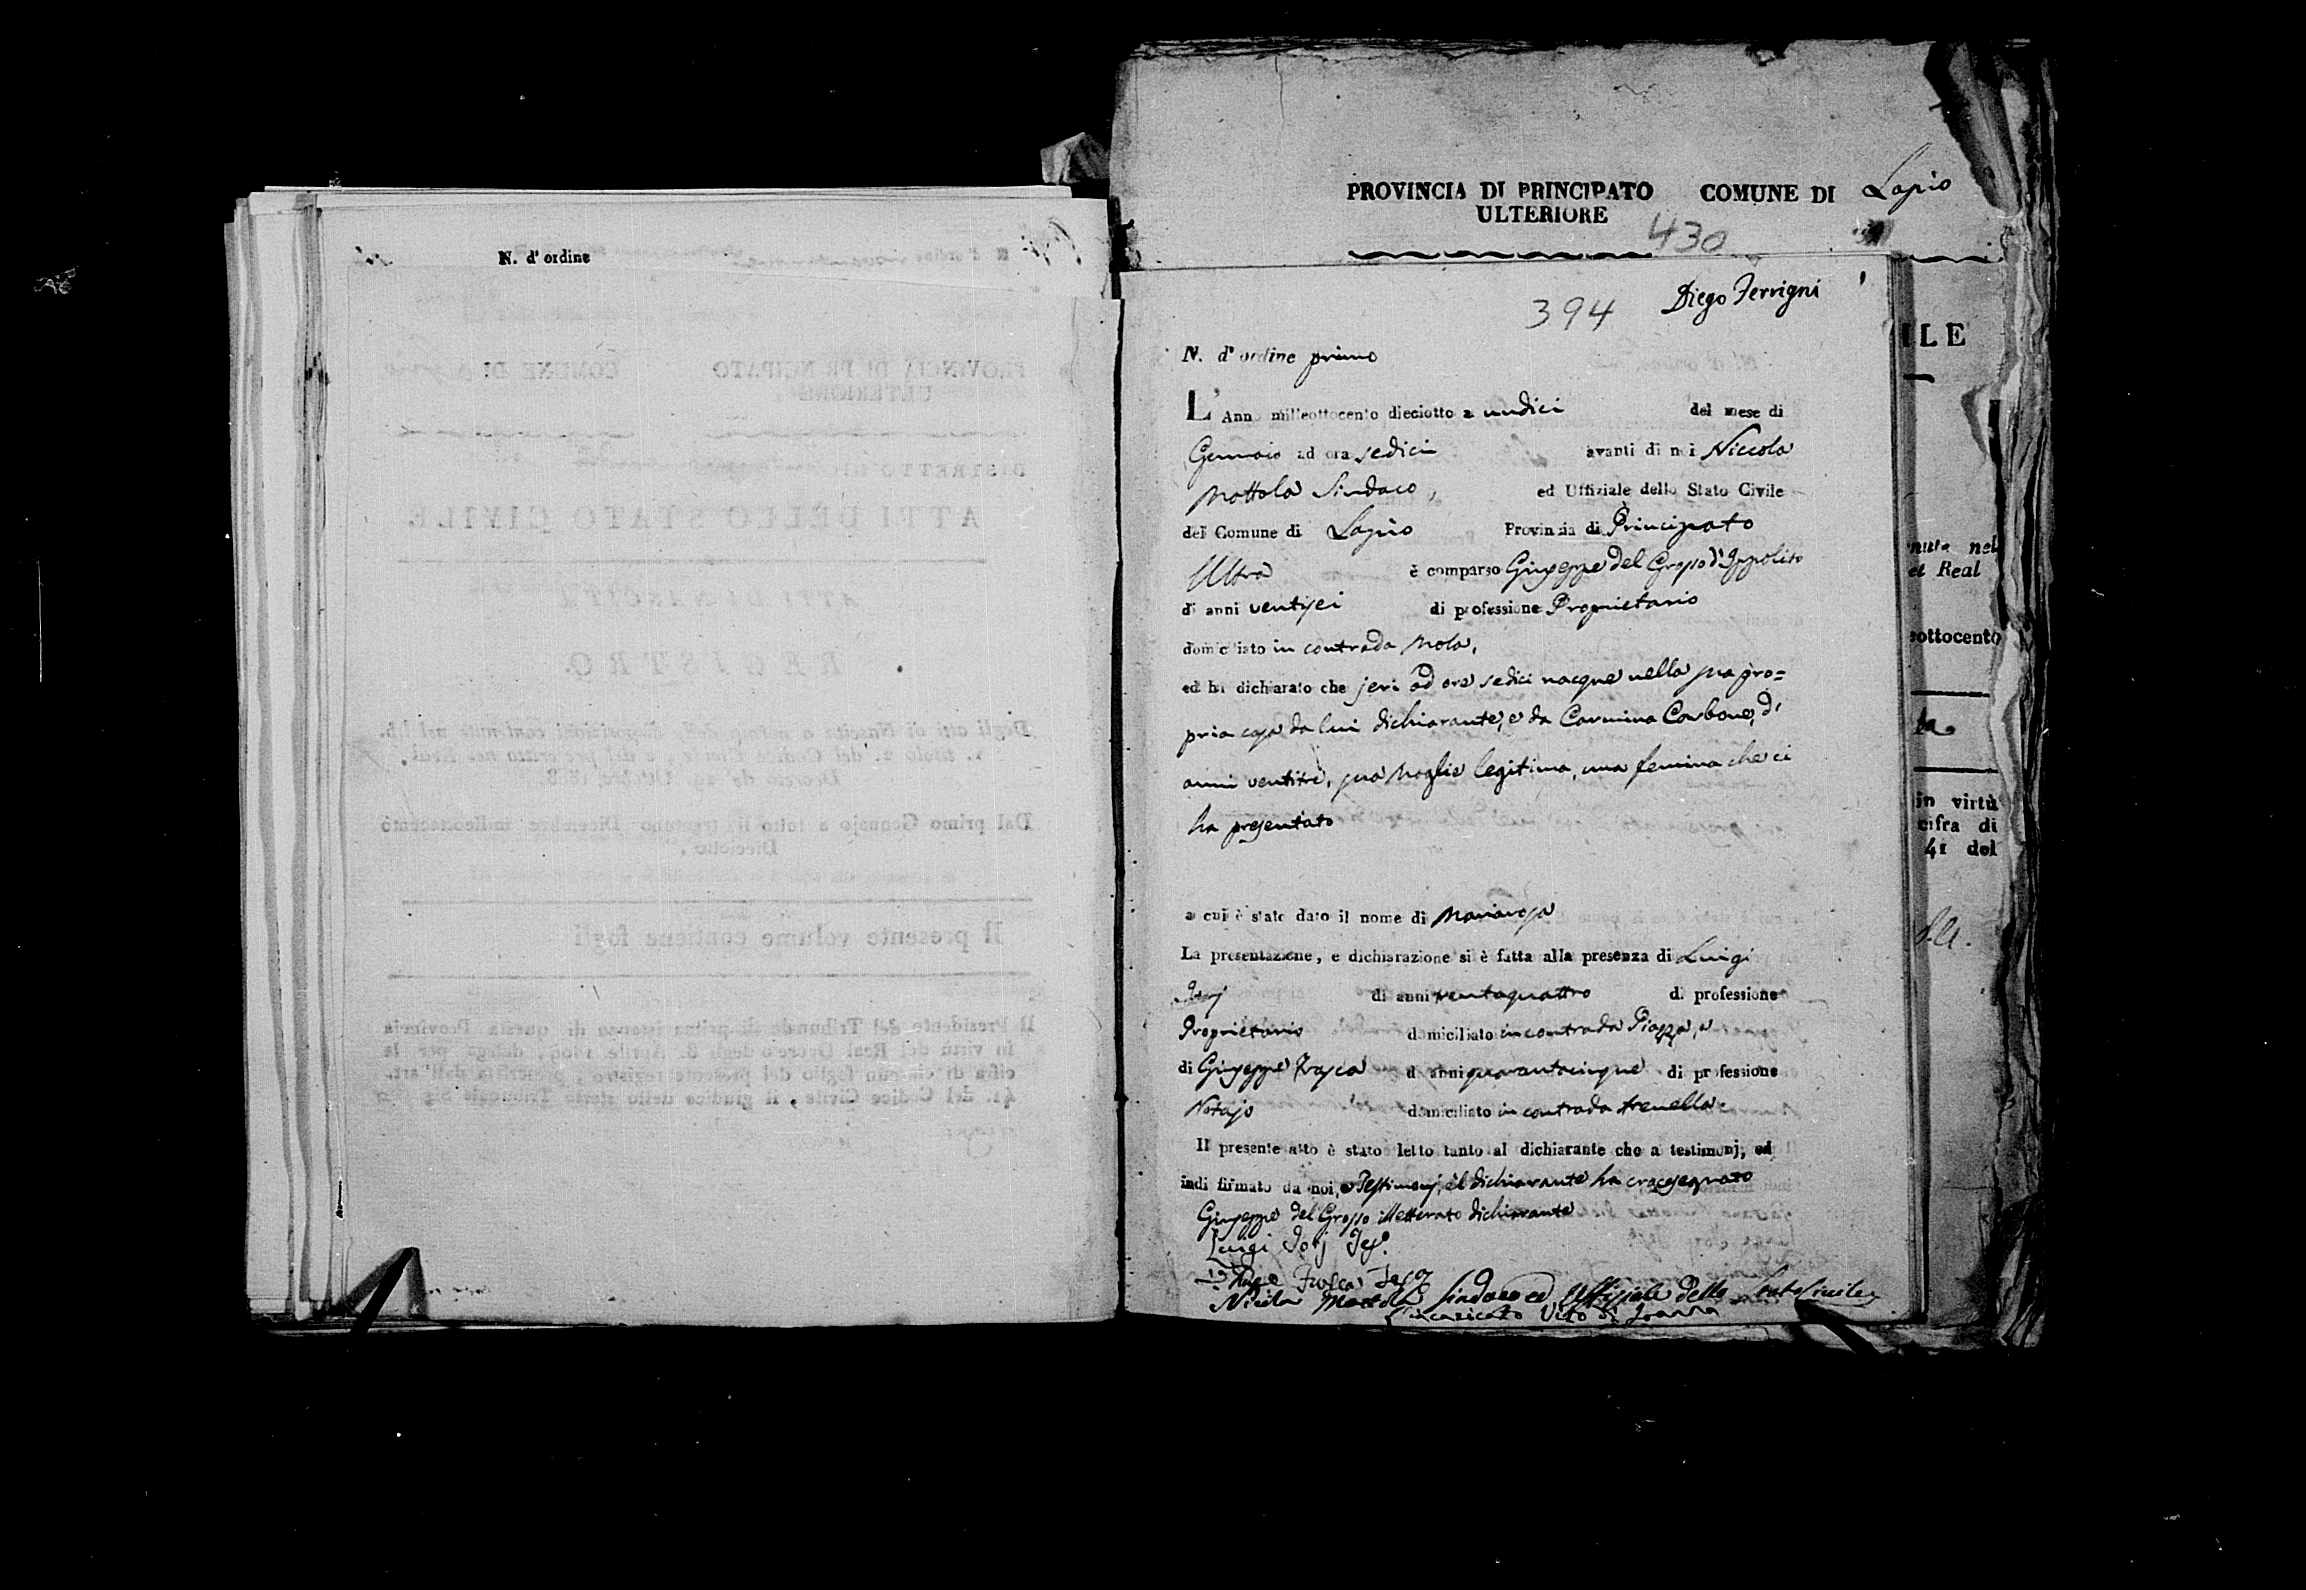 N. d' ordine
PROVINCIA DI PRINCIPATO COMUNE DI Lapio
ULTERIORE
430
Diego Ferrigni
394
N. d' ordine primo
L' Anno milleottocento dieciotto a undici del mese di
Gennaio ad ora sedici avanti di noi Niccola
Mottola Sindaco, ed Uffiziale dello Stato Civile
del Comune di Lapio Provinzia di Principato
Ultra è comparso Giuseppe del Grosso d'Ippolito
di anni ventisei di professione Proprietario
domiciliato in contrada Mola,
ed ha dichiarato che jeri ad ore sedici nacque nella sua pro=
pria casa da lui dichiarante, e da Carmina Carbone, d'
anni ventitrè, sua Moglie legitima, una femina che ci
ha presentato
a cui è stato dato il nome di Mariarosa
La presentazione, e dichiarazione si è fatta alla presenza di Luigi
di anni di professione
Proprietario domiciliato in contrada Piazza, e
di Giuseppe Frasca di anni quarantacinque di professione
Notajo domiciliato in contrada
Il presente atto è stato letto tanto al dichiarante che a testimonj, ed
indi firmato da noi, e Testimonj, il dichiarante ha crocesegnato
Giuseppe del Grosso illetterato dichiarante
Luigi
Frasca
Nicola Mottola Sindaco ed Uffiziale dello Stato Civile
L'incaricato Vito di
ILE
nute nel
et Real
ottocento
in virtù
cifra di
41 del